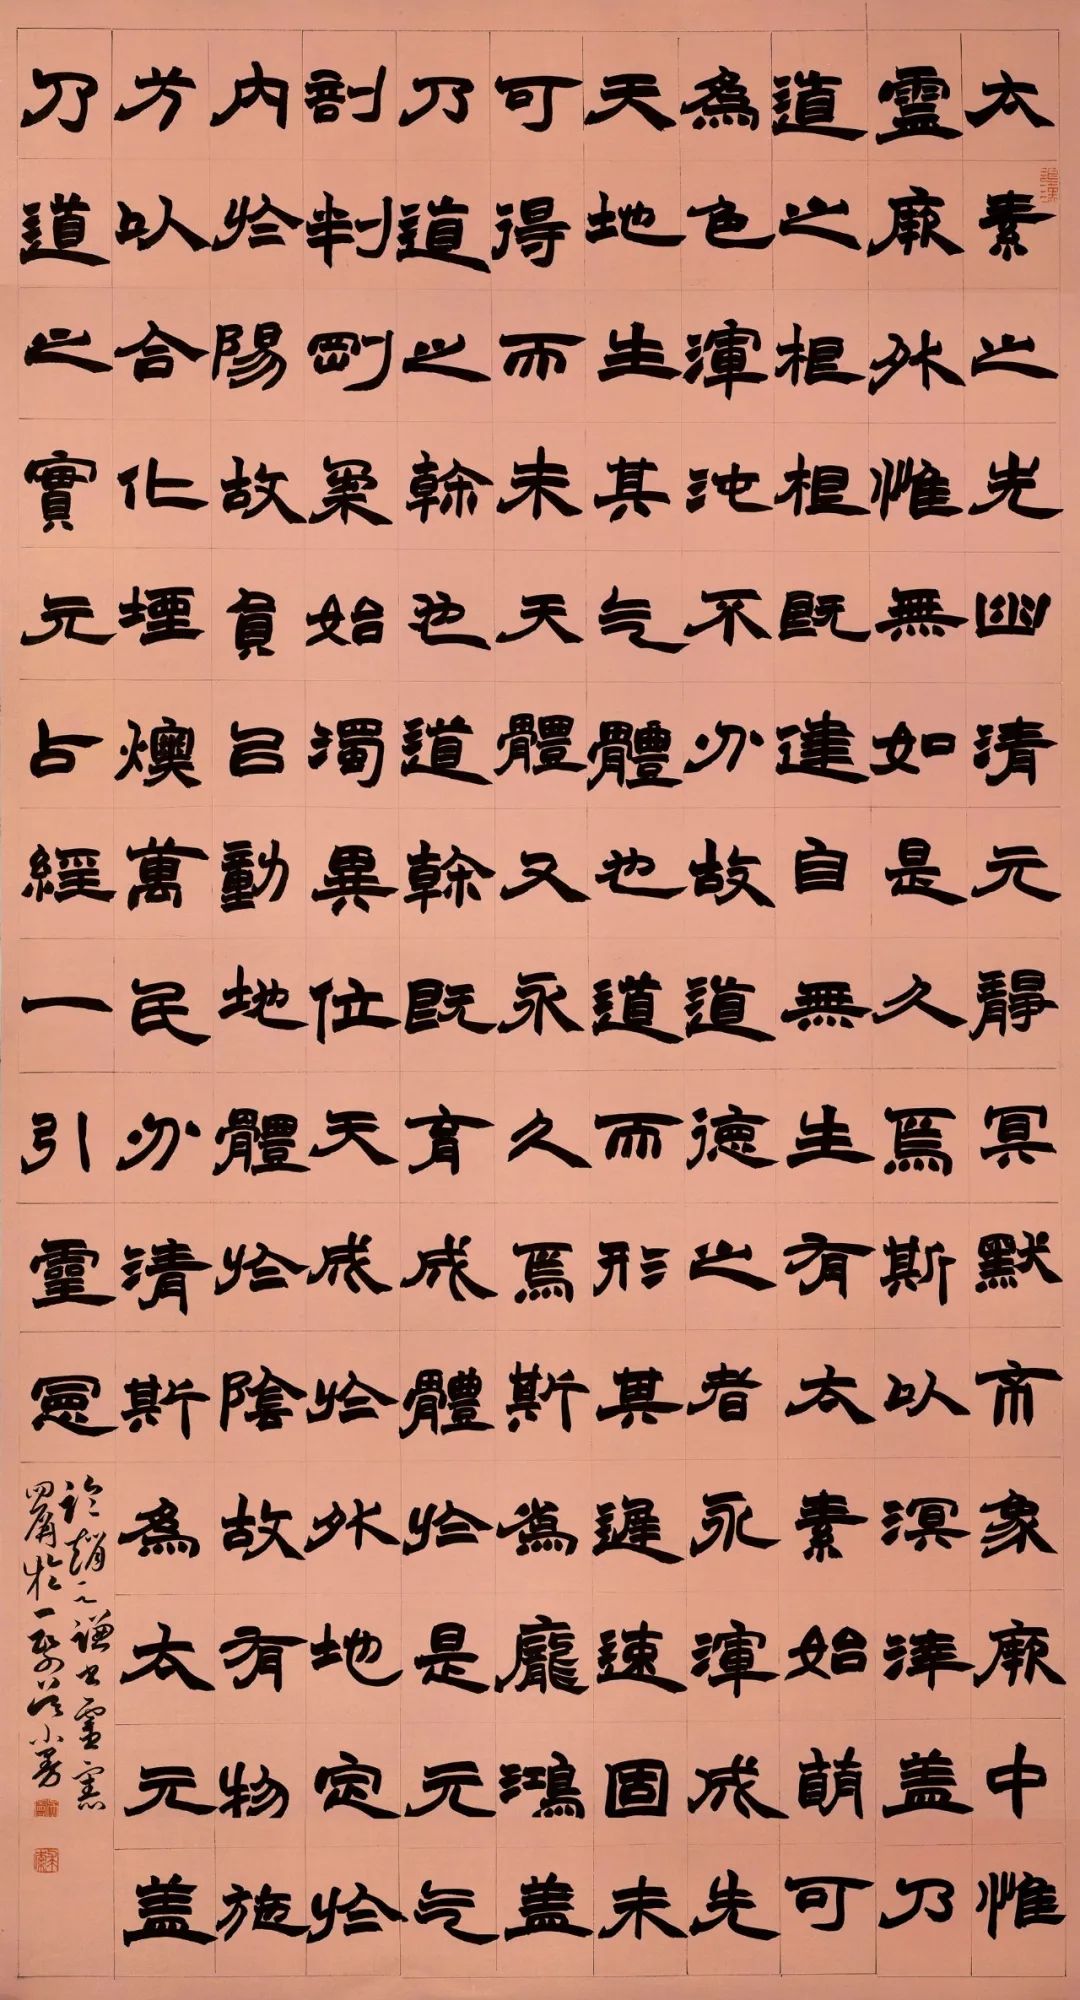 太素之先幽清元靜冥默象厥中惟
靈厥外惟無如是久焉斯以溟涬蓋乃
道之根根既建自無生有太素始萌可
為色渾沌不分故道德之者永渾成先
天地生其气體也道而形其遲速固未
可得而未天體又永久焉斯為龐鴻蓋
乃道之榦也道榦既育成體於是元气
剖判剛柔始濁異位天成於外地定於
內於陽故員以動地體於陰故有物施
方以合化堙燠萬民分清斯為太元蓋
乃道之實元占經一引靈憲
臨趙之謙書靈憲
四屏於一